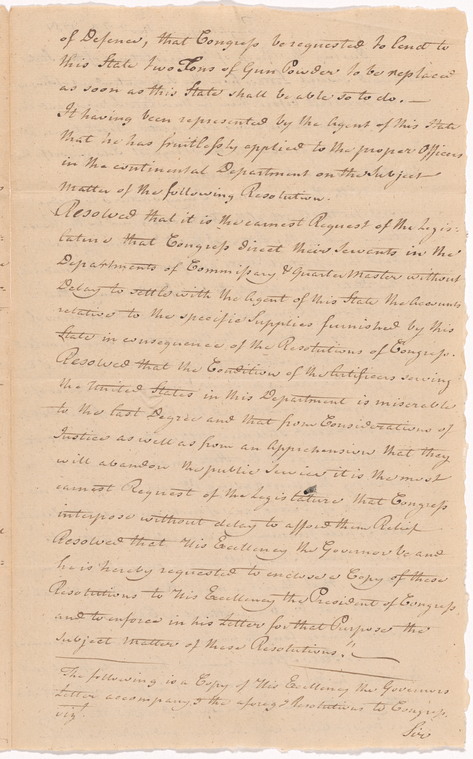 of Defence, that Congress be requested to lend to
this State two Tons of Gun Powder to be replaced
as soon as this State shall be able so to do. —
It having been represented by the Agent of this State
that he has fruitlessly applied to the proper Officers
in the continental Department on the subject
matter of the following Resolution.
Resolved that it is the earnest Request of the Legis-
lature that Congress direct their Servants in the
Departments of Commissary & Quarter Master without
Delay to settle with the Agent of this State the Accounts
relative to the specific Supplies furnished by this
State in consequence of the Resolutions of Congress.
Resolved that the Condition of the Artificers serving
the United States in this Department is miserable
to the last Degree and that from Considerations of
Justice as well as from an Apprehension that they
will abandon the public Service it is the most
earnest Request of the Legislature that Congress
interpose without delay to afford them Relief
Resolved that His Excellency the Governor be and
he is hereby requested to enclose a Copy of these
Resolutions to His Excellency the President of Congress.
and to enforce in his Letter for that Purpose the
subject matter of these Resolutions."
The following is a Copy of His Excellency the Governors
Letter accompang the aforegs Resolutions to Congress.
vizt
Sir